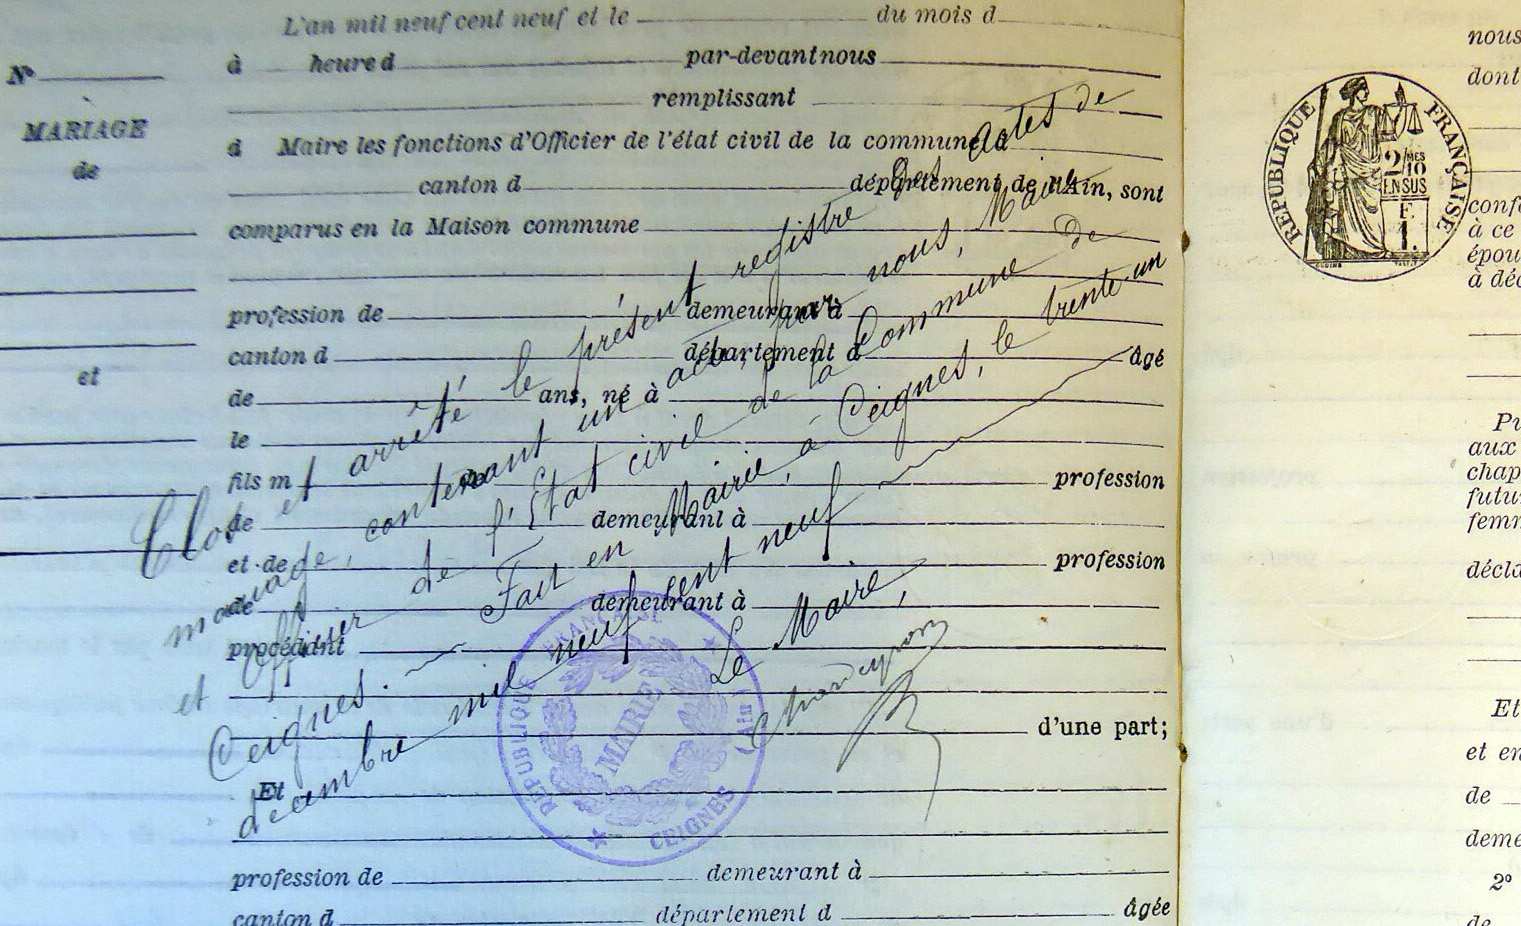 L'an mil neuf cent neuf et le du mois d
à heure d par-devant nous
remplissant
d Maire les fonctions d'Officier de l'état civil de la commune d
canton d département de l'Ain, sont
comparus en la Maison commune
profession de demeurant à
canton d département d âgé
de ans, né à
le
fils m
de demeurant à profession
et de
de demeurant à profession
procédant
d'une part;
Et
profession de demeurant à
canton d département d âgée
N°
MARIAGE
de
et
Clos et arrêté le présent registre des actes de
mariage, contenant un acte, par nous, Maire
et Officier de l'Etat civil de la Commune de
Ceignes. Fait en Mairie, à Ceignes, le trente-un
décembre mil neuf cent neuf
Le Maire,
RÉPUBLIQUE FRANÇAISE
MAIRIE
CEIGNES
(Ain)
RÉPUBLIQUE FRANÇAISE
2/10 MES
EN SUS
F.
1.
nous
dont
confo
à ce
épou
à déc
Pu
aux
chap
futur
femm
décla
Et
et en
de
deme
2°
de